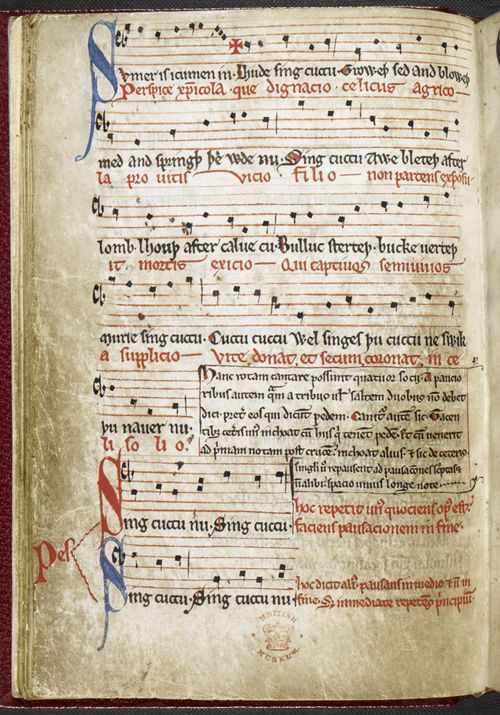 Sumer is icumen in. Lhude sing cuccu. Groweþ sed and bloweþ
Perspice xp̄icola. que dignacio. celicus agrico
med and springþ þe wde nu. Sing cuccu Awe bleteþ after
la pro uitis vicio filio non parcens exposu
lomb. lhouþ after calue cu. Bulluc sterteþ. bucke uerteþ
it mortis exicio Qui captiuos semiuiuos
murie sing cuccu. Cuccu cuccu Wel singes þu cuccu ne swik
a supplicio Vite donat et secum coronat in ce
þu nauer nu.
li solio.
Hanc rotam cantare possunt quatuor socii. A paucio
ribus autem quam a tribus uel saltem duobus non debet
dici. preter eos qui dicunt pedem. Canitur autem sic. Tacen
tibus ceteris unus inchoat cum hiis qui tenent pedem. Et cum uenerit
ad primam notam post crucem. inchoat alius. et sic de ceteris.
singuli uero repausent ad pausaciones scriptas et
non alibi. spacio unius longe note.
Sing cuccu nu. Sing cuccu.
hoc repetit unus quociens opus est.
faciens pausacionem in fine.
Pes
Sing cuccu. Sing cuccu nu
hoc dicit alius. pausans in medio et non in
fine. Set immediate repetens principium.
BRITISH
MUSEUM